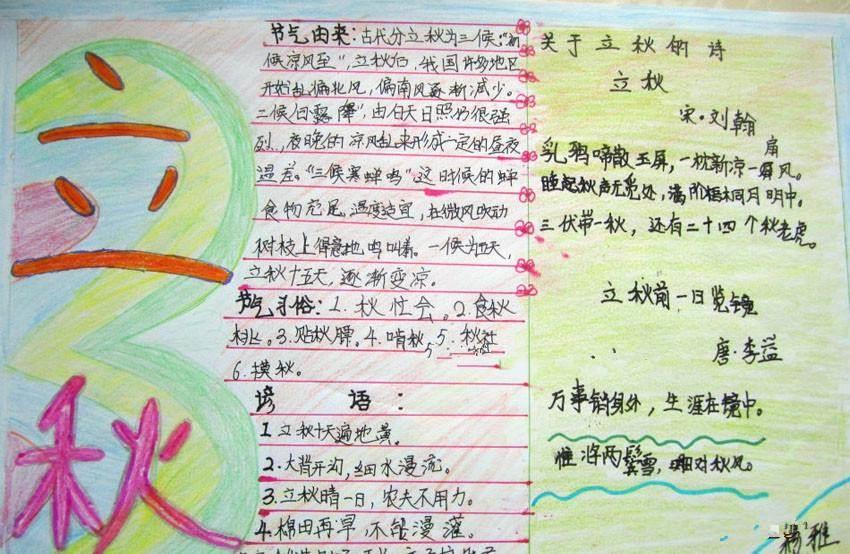 立
秋
节气由来：古代分立秋为三候："初
候凉风至"，立秋后，我国许多地区
开始乱偏北风，偏南风逐渐减少。
二候"白露降"，由白天日照仍很强
烈，夜晚的凉风乱来形成一定的昼夜
温差。"三候寒蝉鸣"这时候的蝉
食物充足。温度适宜，在微风吹动
树枝上得意地鸣叫着。一候为五天，
立秋十五天，逐渐变凉。
节气习俗：1.秋忙会。2.食秋
桃。3.贴秋膘。4.啃秋，5.秋社
6.摸秋。
谚 语：
1.立秋十天遍地黄。
2.大背开沟，细水漫流。
3.立秋晴一日，农夫不用力。
4.棉田再旱，不能漫灌。
关于立秋的诗
立秋
宋·刘翰
乳鸦啼散玉屏，一枕新凉一扇风。
睡起秋声无觅处，满阶梧桐月明中。
三伏带一秋，还有二十四个秋老虎。
立秋前一日览镜
唐·李益
万事销身外，生涯在镜中。
惟将两鬓雪，相对秋风。
杨雅